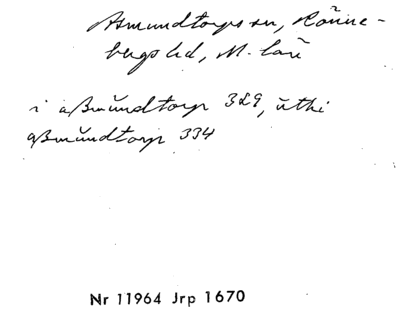 Asmundtorps sn, Rönne-
bergs hd, M. län
i aßmŭndtorp 329, ŭthi
aßmŭndtorp 334
Nr 11964 Jrp 1670